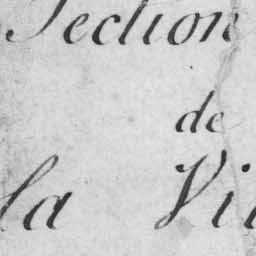 Section
de
la Vil